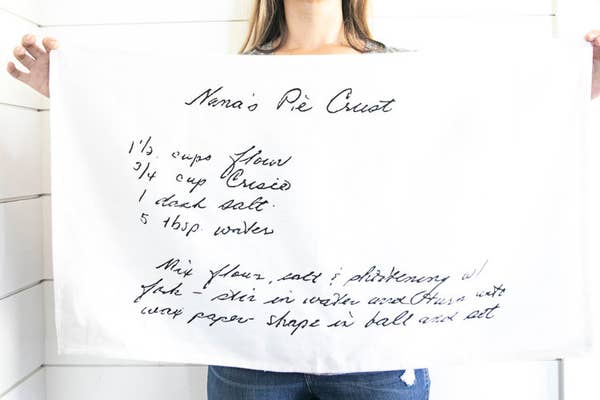 Nana's Pie Crust
1 1/2 cups flour
3/4 cup Crisco
1 dash salt
5 tbsp. water
Mix flour, salt & shortening w/
fork - stir in water and turn onto
wax paper - shape in ball and set